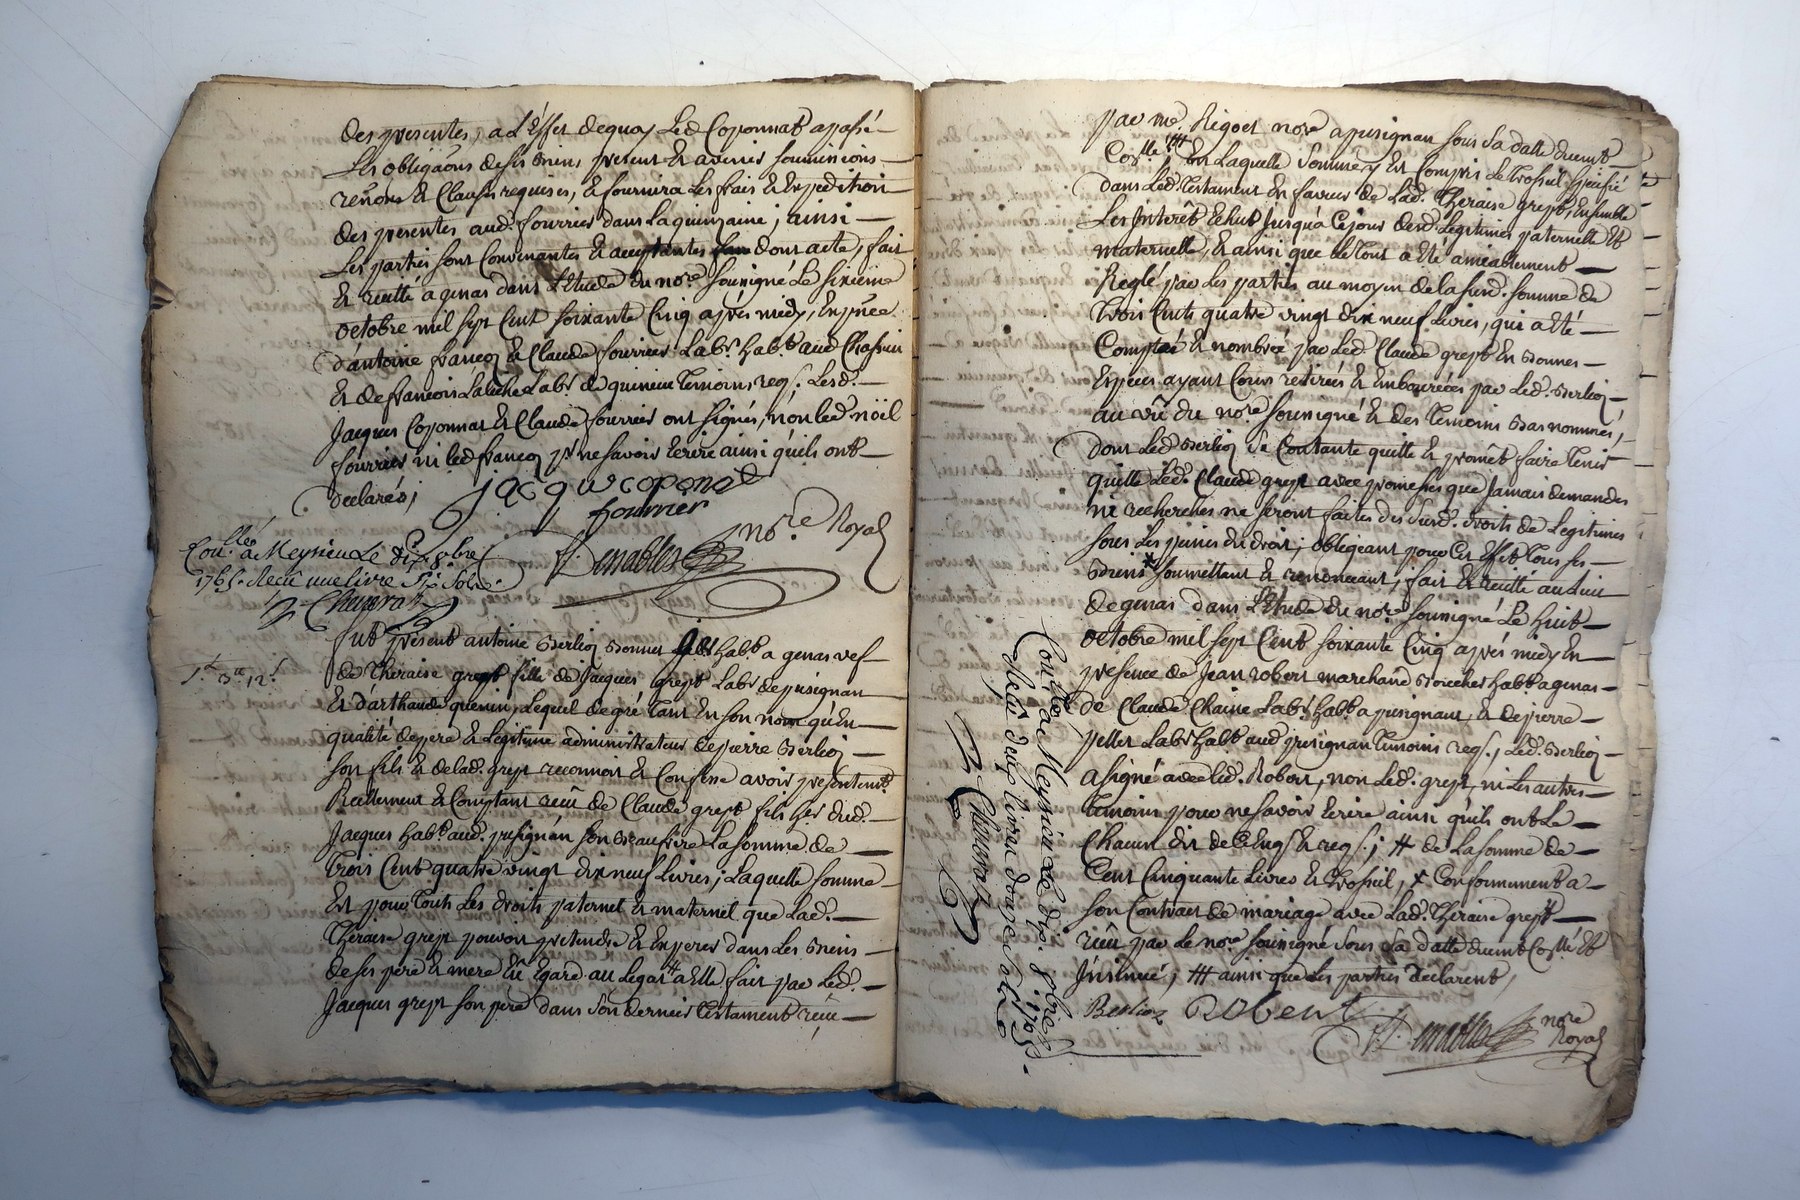 des presentes, a L'Effet dequoy Led. Coponnat apassé
Les obligãons deses Biens present Et avenir soumissions
renõns Et Clauses requises, Et fournira Les frais Et Expedition
des presentes aud. fourrier dans Laquinzaine; ainsi
Les parties sont Convenantes Et acceptantes dont acte, fait
Et recitté agenas dans L'Etude du no.re soussigné Le sixieme
octobre mil sept Cent soixante Cinq après midy, En pñce
d'antoine françon Et Claude fourrier Lab.r hab.t aud Chassieu
Et de françois Lab.r de temoins req.s. Lesd.
Jacques Coponnat Et Claude fourrier ont signés, non led. nöel
fourrier ni led françon p.r ne savoir Ecrire ainsi qu'ils ont
declarés;
jacque coponat
fourrier
Denables no.re Royal
Con.lléo a Meysieu Le dix 8.bre
1765. Receu une livre Six Sols
Chevrat
fut present antoine Berlioz Bonnet hab.t a genas vef
de Theraise grept fille de Jacques grept Lab.r de pusignan
3.# 12.s
Et d'arthaude quenin, Lequel de gré Tant En son nom qu'En
qualité de pere Et Legitime administrateur de pierre Berlioz
son fils Et de lad. grept reconnoit Et Confesse avoir presentem.t
Reellement Et Comptant reçu de Claude grept fils her. dud.
Jacques hab.t aud. pusignan son Beaufrere La somme de
Trois Cent quatre vingt dix neuf Livres; Laquelle somme
Est pour Touts Les droits paternel Et maternel que Lad.
Theraise grept pouvoit pretendre Et Esperer dans Les Biens
de ses pere Et mere Eü Egard au Legat # a Elle fait par Led.
Jacques grept son pere dans son dernier Testament reçu
par m.e Rigoet no.re a pusignan sous sa datte düemt
Con.llé ### En Laquelle Somme y Est Compris Le Trosseil specifié
dans Led. Testament En faveur de Lad. Theraise grept, Ensemble
Les Interêt Echut Jusqu'a Cejour desd. Legitimes paternelle Et
maternelle, Et ainsi que Le Tout a Eté amiablement
Reglé par Les parties au moyen de la susd. somme de
Trois Cents quatre vingt dix neuf Livres, qui a Eté
Comptée Et nombrée par Led. Claude grept En Bonnes
Especes ayant Cours retirées Et Emboursées par Led. Berlioz
au vû du no.re soussigné Et des Temoins Bas nommés,
dont Led Berlioz Se Contante quitte Et promêt faire Tenir
quitte Led. Claude grept avec promesses que Jamais demandes
ni recherches ne seront faites des susd. droits de Legitimes
sous Les peines du droit; obligeant pour Cet Effet Tous ses
Biens * soumettant Et renonceant, fait Et recitté au Lieu
de genas dans L'Etude du no.re soussigné Le huit
octobre mil sept Cent soixante Cinq après midy En
presence de Jean robert marchand Boucher hab.t a genas
de Claude Chaine Lab.r hab.t a pusignant, Et de pierre
pellet Lab.r hab.t aud pusignan Temoins req.s, Led. Berlioz
a signé avec led. Robert, non Led. grept, ni Les autres
temoins pour ne savoir Ecrire ainsi qu'ils ont Le
Chacun dit de Ce Enq.s Et req.s; # de La somme de
Cent Cinquante Livres Et trosseil, * Conformement a
son Contract de mariage avec Lad. Theraise grept
reçu par Le no.re soussigné sous sa datte düemt Con.llé Et
Insinué; ### ainsi que Les parties declarent,
Berlioz Robert
Denables no.re Royal
Con.lléo a Meysieu Le dix 8.bre 1765.
Reçu deux livres douze sols
Chevrat